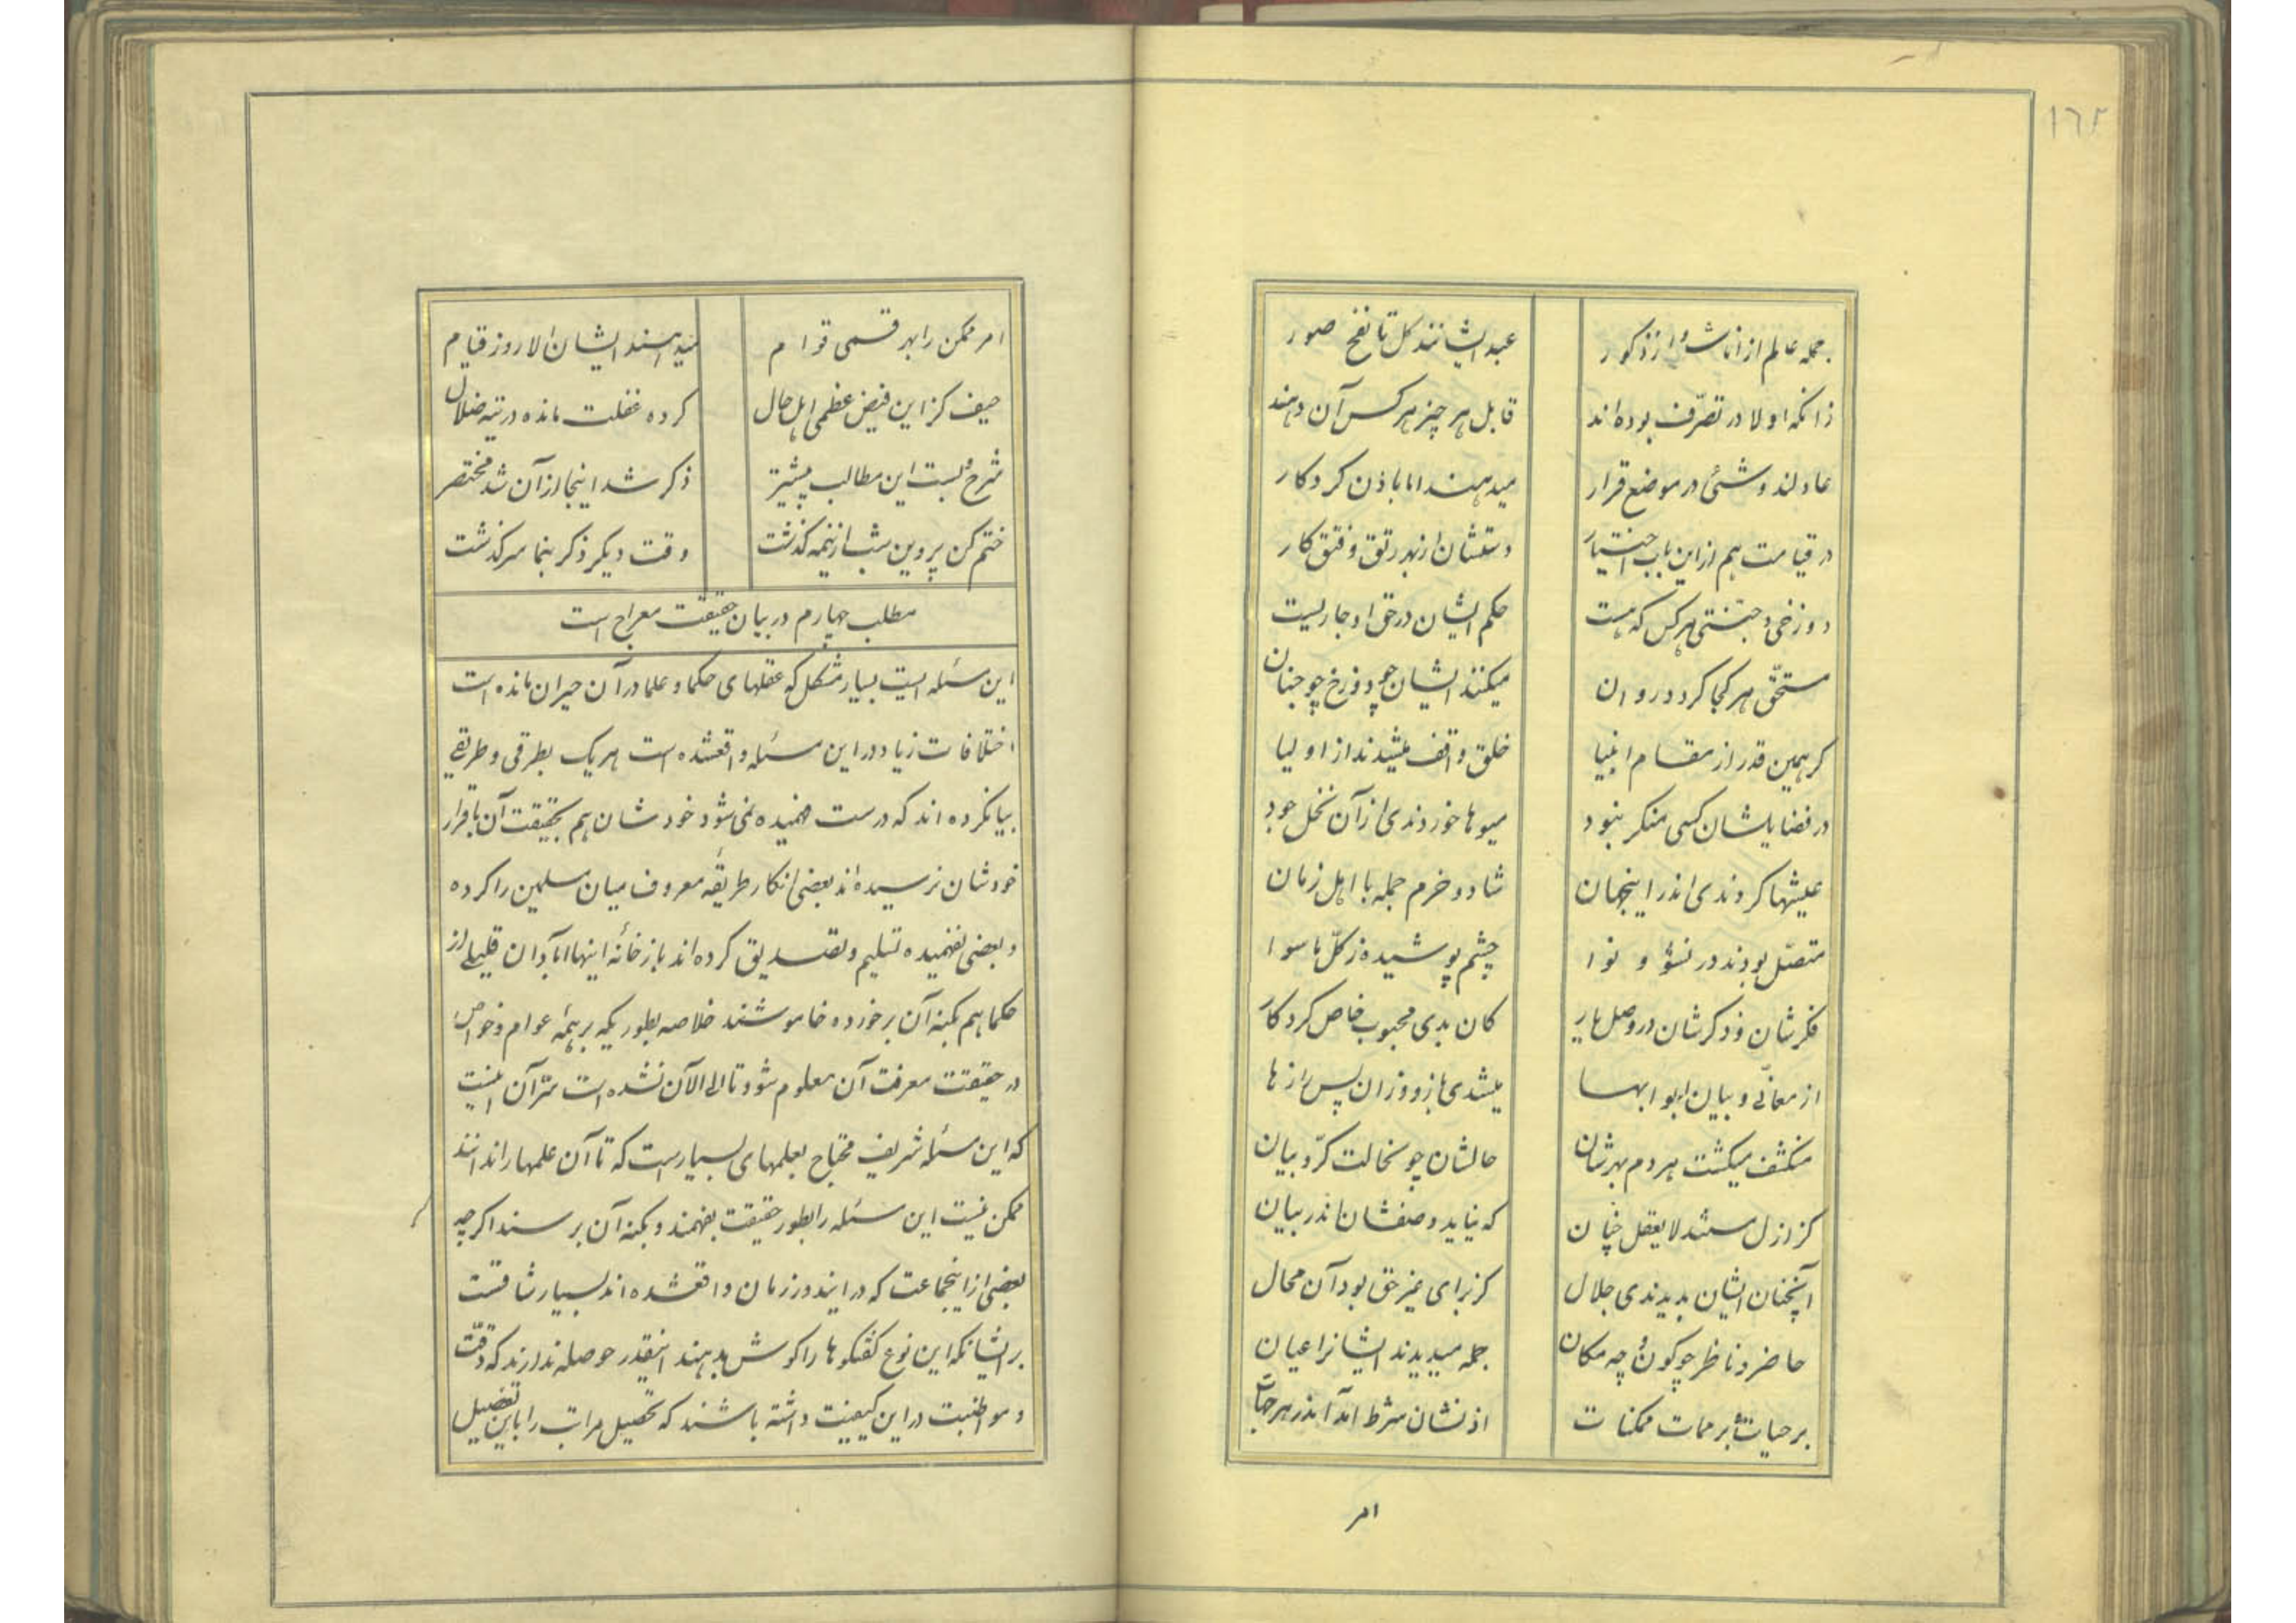 ١٦٢
جمله عالم از اناث و از ذکور
عبد ایشانند کل تا نفخ صور
زانکه اولا در تصرّف بوده‌اند
قابل هر چیز هرکس آن دهند
عادلند و شئی در موضع قرار
میدهند اما باذن کردکار
در قیامت هم از این باب اختیار
دستشان از بهر رتق و فتق کار
دوزخی و جنّتی هرکس که هست
حکم ایشان در حق او جاریست
مستحّق هر کجا کردد روان
میکنند ایشان چو دوزخ چو جنان
کر همین قدر از مقام انبیا
خلق واقف میشدند از اولیا
در فضایلشان کسی منکر نبود
میوها خوردندی از آن نخل جود
عیشها کردندی اندر اینجهان
شاد و خرم جمله با اهل زمان
متصّل بودند در نشؤ و نوا
چشم پوشیده ز کلّ ما سوا
فکرشان و ذکرشان در وصل یار
کان بدی محبوب خاص کردکار
از معانی و بیان ابوابها
میشدی باز و وزان پس رازها
منکشف میکشت هردم بهرشان
حالشان چو نحالت کرّوبیان
کز ازل مستند لا یعقل چنان
که نیاید وصفشان اندر بیان
آنچنان ایشان بدیدندی جلال
کز برای غیر حق بود آن محال
حاضر و ناظر چو کون و چه مکان
جمله میدیدند ایشانرا عیان
بر حیات و بر ممات ممکنات
اذنشان شرط آمد اندر هر جهات
امر
امر ممکن را بهر قسمی قوام
میدهند ایشان الا روز قیام
حیف کز این فیض عظمی اهل حال
کرده غفلت مانده در تیه ضلال
شرح و بست این مطالب پیشتر
ذکر شد اینجا از آن شد مختصر
ختم کن پروین شب از نیمه کذشت
وقت دیکر ذکر بنما سرکذشت
مطلب چهارم در بیان حقیقت معراج است
این مسئله ایست بسیار مشکل که عقلهای حکما و علما در آن حیران مانده است
اختلافات زیاد در این مسئله واقعشده است هر یک بطرقی و طریقی
بیانکرده اند که درست فهمیده نمی شود خودشان هم بحقیقت آن باقرار
خودشان نرسیده‌اند بعضی انکار طریقه معروف میان مسلمین را کرده
و بعضی نفهمیده تسلیم و تصدیق کرده‌اند باز خانه اینها آبادان قلیلی از
حکما هم بکنه آن برخورده خاموشند خلاصه بطوریکه بر همه عوام و خواص
در حقیقت معرفت آن معلوم شود تا الی الآن نشده است سّر آن اینست
که این مسئله شریف محتاج بعلمهای بسیار است که تا آن علمها را ندانند
ممکن نیست این مسئله را بطور حقیقت بفهمند و بکنه آن برسند اکرچه
بعضی از اینجماعت که در ایندور زمان واقعشده اند بسیار شاقست
بر ایشانکه این نوع کفتکوها را کوش بدهند اینقدر حوصله ندارند که دقت
و مواظبت در این کیفیت داشته باشند که تحصیل مراتب را باین تفضیل